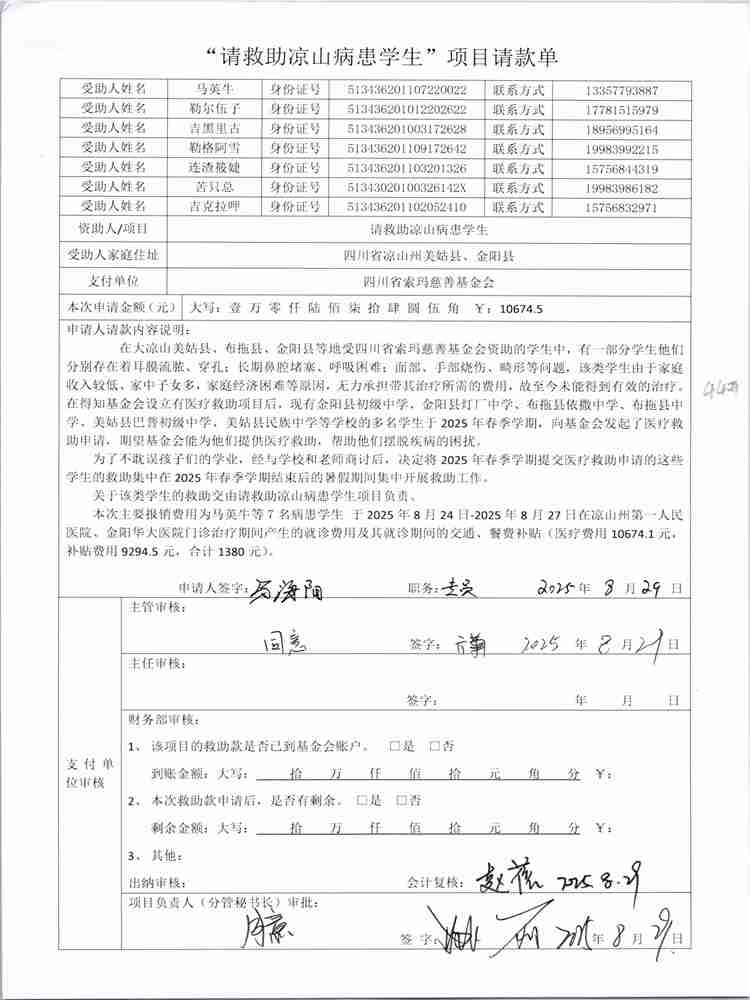 “请救助凉山病患学生”项目请款单
受助人姓名 马英牛 身份证号 513436201107220022 联系方式 13357793887
受助人姓名 勒尔伍子 身份证号 513436201012202622 联系方式 17781515979
受助人姓名 吉黑里古 身份证号 513436201003172628 联系方式 18956995164
受助人姓名 勒格阿雪 身份证号 513436201109172642 联系方式 19983992215
受助人姓名 连渣莜婕 身份证号 513436201103201326 联系方式 15756844319
受助人姓名 苦只总 身份证号 51343020100326142X 联系方式 19983986182
受助人姓名 吉克拉呷 身份证号 513436201102052410 联系方式 15756832971
资助人/项目 请救助凉山病患学生
受助人家庭住址 四川省凉山州美姑县、金阳县
支付单位 四川省索玛慈善基金会
本次申请金额（元） 大写：壹 万 零 仟 陆 佰 柒 拾 肆 圆 伍 角 ￥：10674.5
申请人请款内容说明：
在大凉山美姑县、布拖县、金阳县等地受四川省索玛慈善基金会资助的学生中，有一部分学生他们
分别存在着耳膜流脓、穿孔；长期鼻腔堵塞、呼吸困难；面部、手部烧伤、畸形等问题，该类学生由于家庭
收入较低、家中子女多，家庭经济困难等原因，无力承担带其治疗所需的费用，故至今未能得到有效的治疗。
在得知基金会设立有医疗救助项目后，现有金阳县初级中学，金阳县灯厂中学、布拖县依撒中学、布拖县中
学、美姑县巴普初级中学、美姑县民族中学等学校的多名学生于 2025 年春季学期，向基金会发起了医疗救
助申请，期望基金会能为他们提供医疗救助，帮助他们摆脱疾病的困扰。
为了不耽误孩子们的学业，经与学校和老师商讨后，决定将 2025 年春季学期提交医疗救助申请的这些
学生的救助集中在 2025 年春季学期结束后的暑假期间集中开展救助工作。
关于该类学生的救助交由请救助凉山病患学生项目负责。
本次主要报销费用为马英牛等 7 名病患学生 于 2025 年 8 月 24 日-2025 年 8 月 27 日在凉山州第一人民
医院、金阳华大医院门诊治疗期间产生的就诊费用及其就诊期间的交通、餐费补贴（医疗费用 10674.1 元，
补贴费用 9294.5 元，合计 1380 元）。
申请人签字：马海阳 职务：专员 2025 年 8 月 29 日
支 付 单
位审核
主管审核：
同意 签字： 2025 年 8 月 29 日
主任审核：
签字： 年 月 日
财务部审核：
1、 该项目的救助款是否已到基金会账户。 □是 □否
到账金额：大写： 拾 万 仟 佰 拾 元 角 分 ￥：
2、 本次救助款申请后，是否有剩余。 □是 □否
剩余金额：大写： 拾 万 仟 佰 拾 元 角 分 ￥：
3、 其他：
出纳审核： 会计复核： 2025.8.29
项目负责人（分管秘书长）审批：
同意
签 字： 2025 年 8 月 29 日